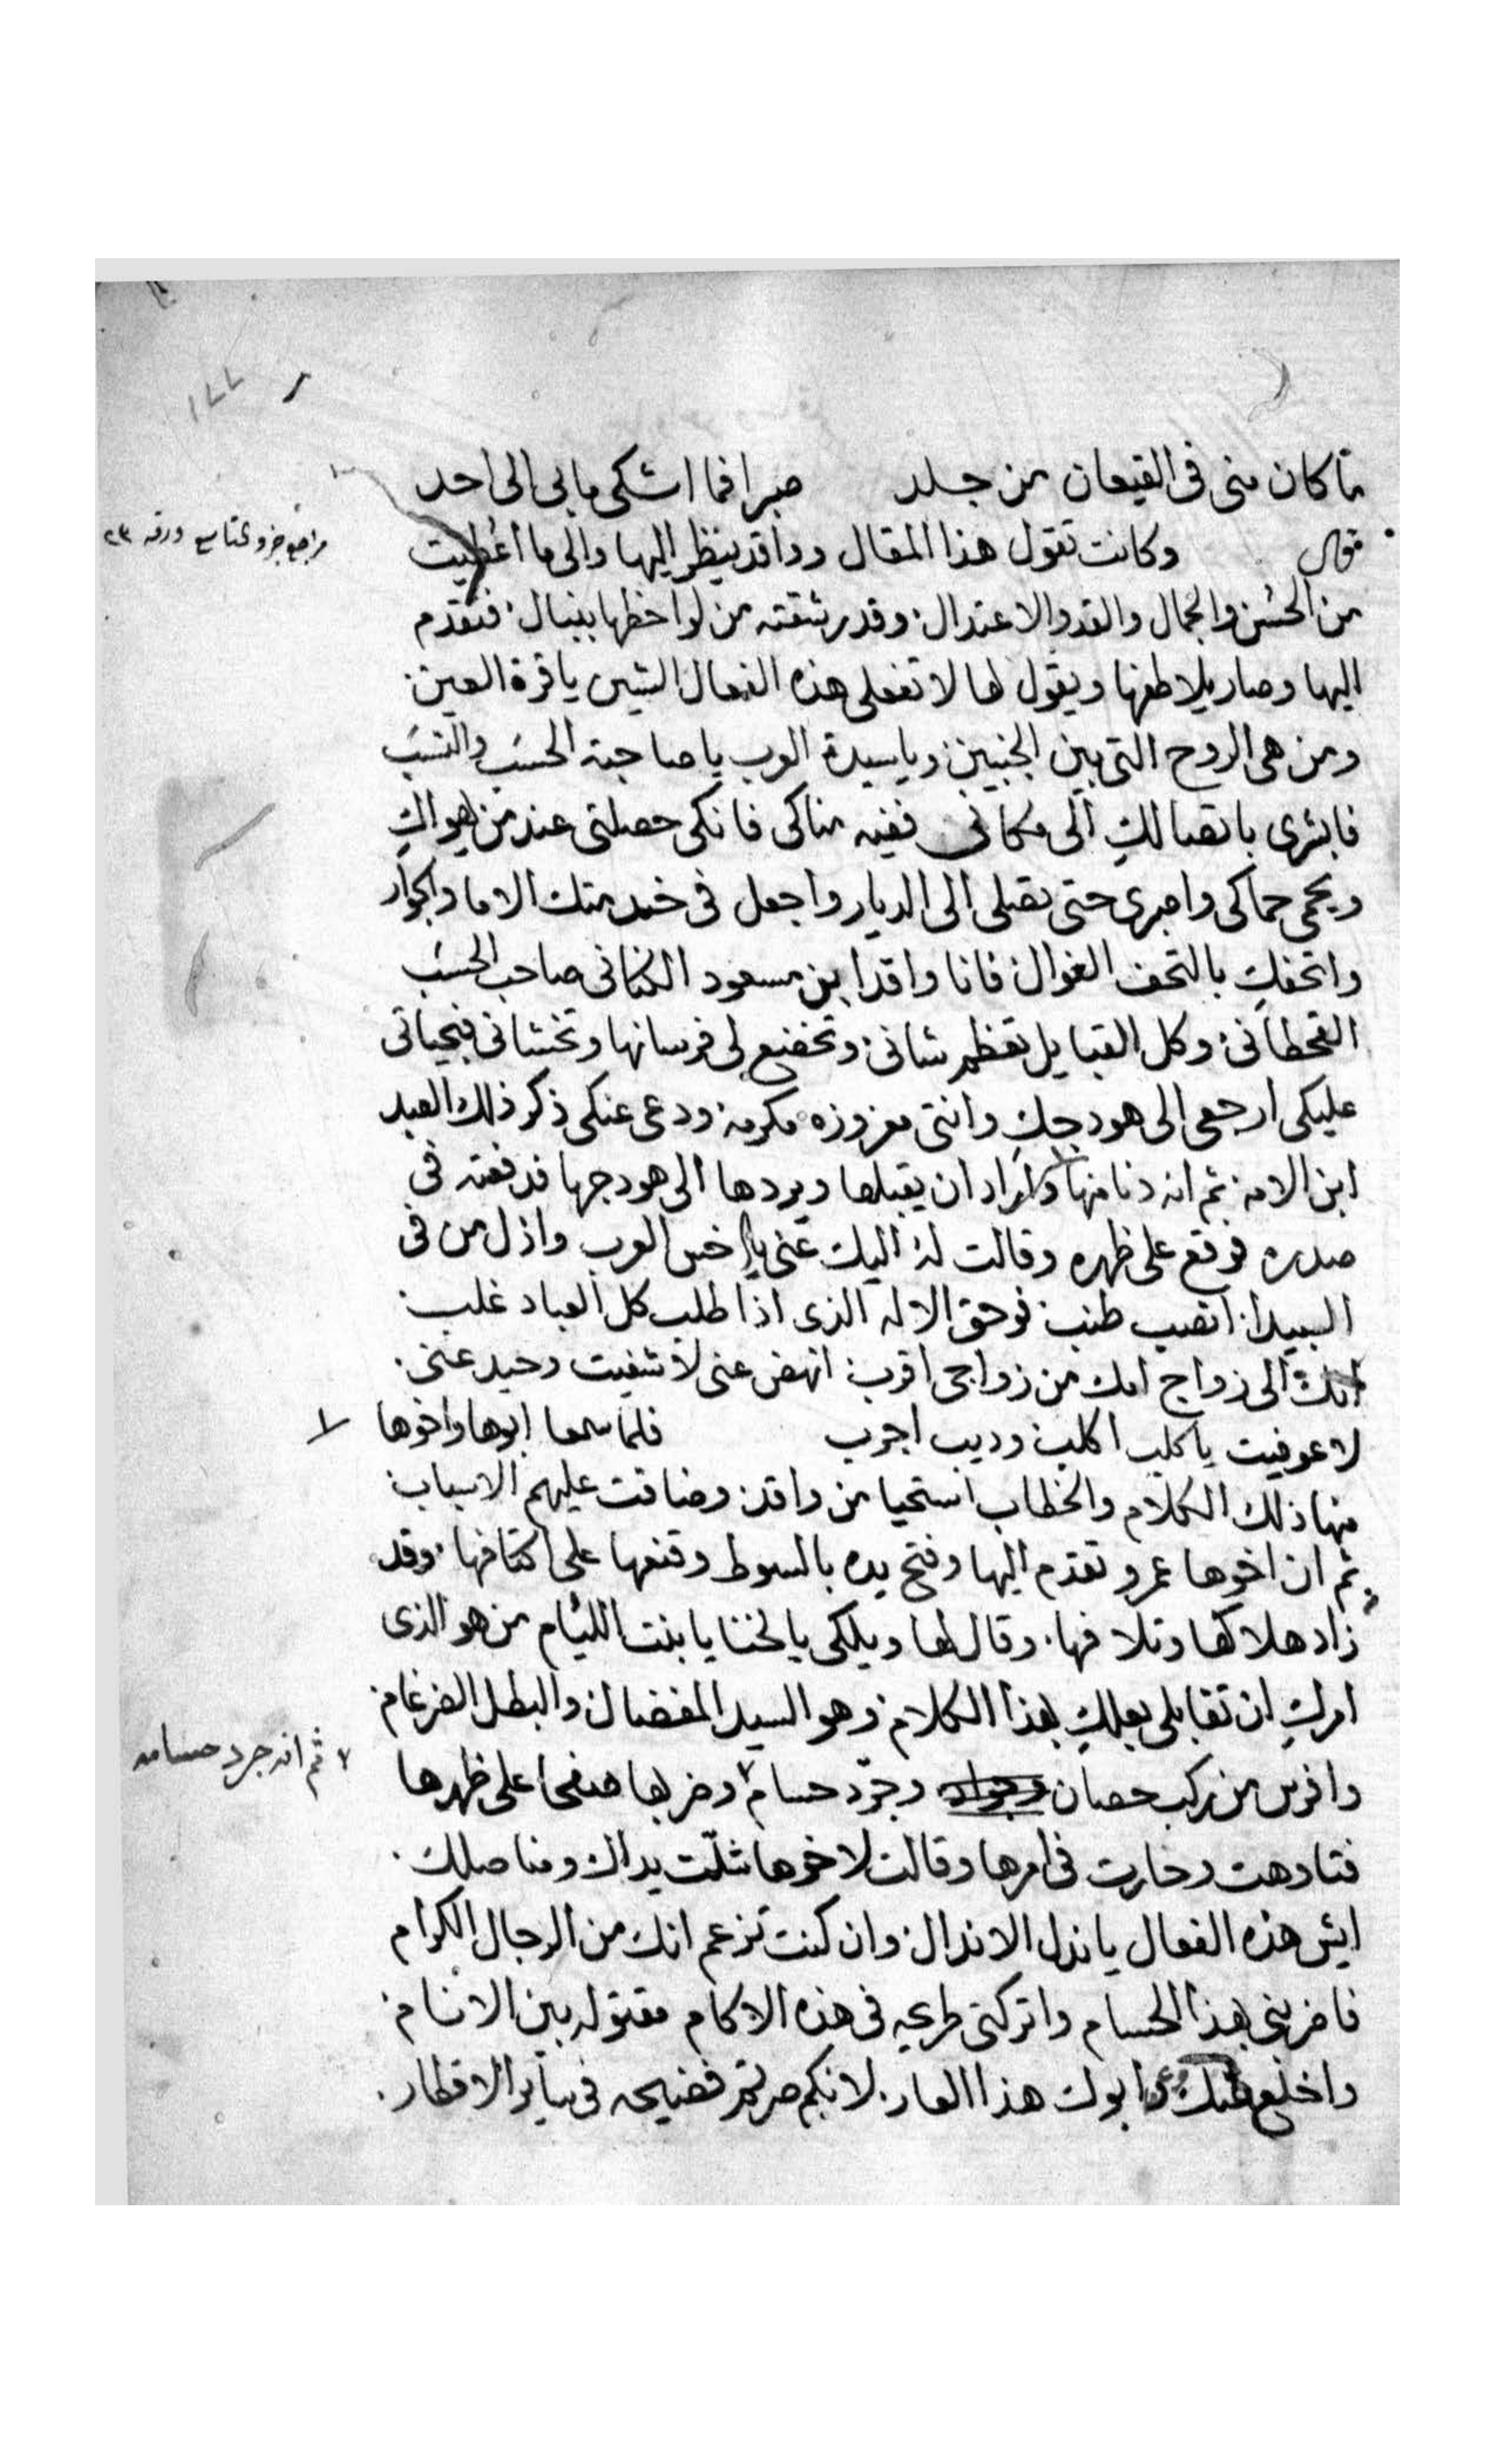 ما كان منى فى القيعان من جلد صبرا فما اشكى ما بى الى احد
قال وكانت تقول هذا المقال وواقد ينظر اليها والى ما اعطيت
من الحسن والجمال والقد والاعتدال وقد رشقته من لواحظها بنبال فتقدم
اليها وصار يلاطفها ويقول لها لا تفعلى هذه الفعال الشين يا قرة العين
ومن هى الروح التى بين الجنبين ويا سيدة العرب يا صاحبة الحسب والنسب
فابشرى باتصالكِ الى مكانى ففيه مناكى فانكى حصلتى عند من يهواكِ
ويحمى حماكى واصبرى حتى تصلى الى الديار واجعل فى خدمتك الاما والجوار
واتحفكِ بالتحف الغوال فانا واقد ابن مسعود الكنانى صاحب الحسب
القحطانى وكل القبايل تعظم شانى وتخضع لى فرسانها وتخشانى فبحياتى
عليكى ارجعى الى هودجكِ وانتى معزوزه مكرمه ودعى عنكى ذكر ذلك العبد
ابن الامه ثم انه دنا منها واراد ان يقبلها ويردها الى هودجها فدفعته فى
صدره فوقع على ظهره وقالت له اليك عنى يا اخس العرب واذل من فى
البيدا نصب طنب فوحق الاله الذى اذا طلب كل العباد غلب
انك الى زواج امك من زواجى اقرب انهض عنى لا شفيت وحيد عنى
لا عوفيت يا كلب اكلب وديب اجرب فلما سمعا ابوها واخوها
منها ذلك الكلام والخطاب استحيا من واقد وضاقت عليهم الاسباب
ثم ان اخوها عمرو تقدم اليها وفتح يده بالسوط وقنعها على اكتافها وقد
زاد هلاكها وتلافها وقال لها ويلكى يا لخنا يا بنت الليام من هو الذى
امركِ ان تقابلى بعلكِ بهذا الكلام وهو السيد المفضال والبطل الضرغام
وافرس من ركب حصان وجرّد حسام وضربها صفحا على ظهرها
فتاوهت وحارت فى امرها وقالت لاخوها شلّت يداك ومفاصلك
ايش هذه الفعال يا نذل الاندال وان كنت تزعم انك من الرجال الكرام
فاضربنى بهذا الحسام واتركنى طريحه فى هذه الاكام مقتوله بين الانام
واخلع عنك وعن ابوك هذا العار لانكم صرتم فضيحه فى ساير الاقطار
راجع جزو تاسع ورقه ٢٣
ثم انه جرد حسامه
١٧٧